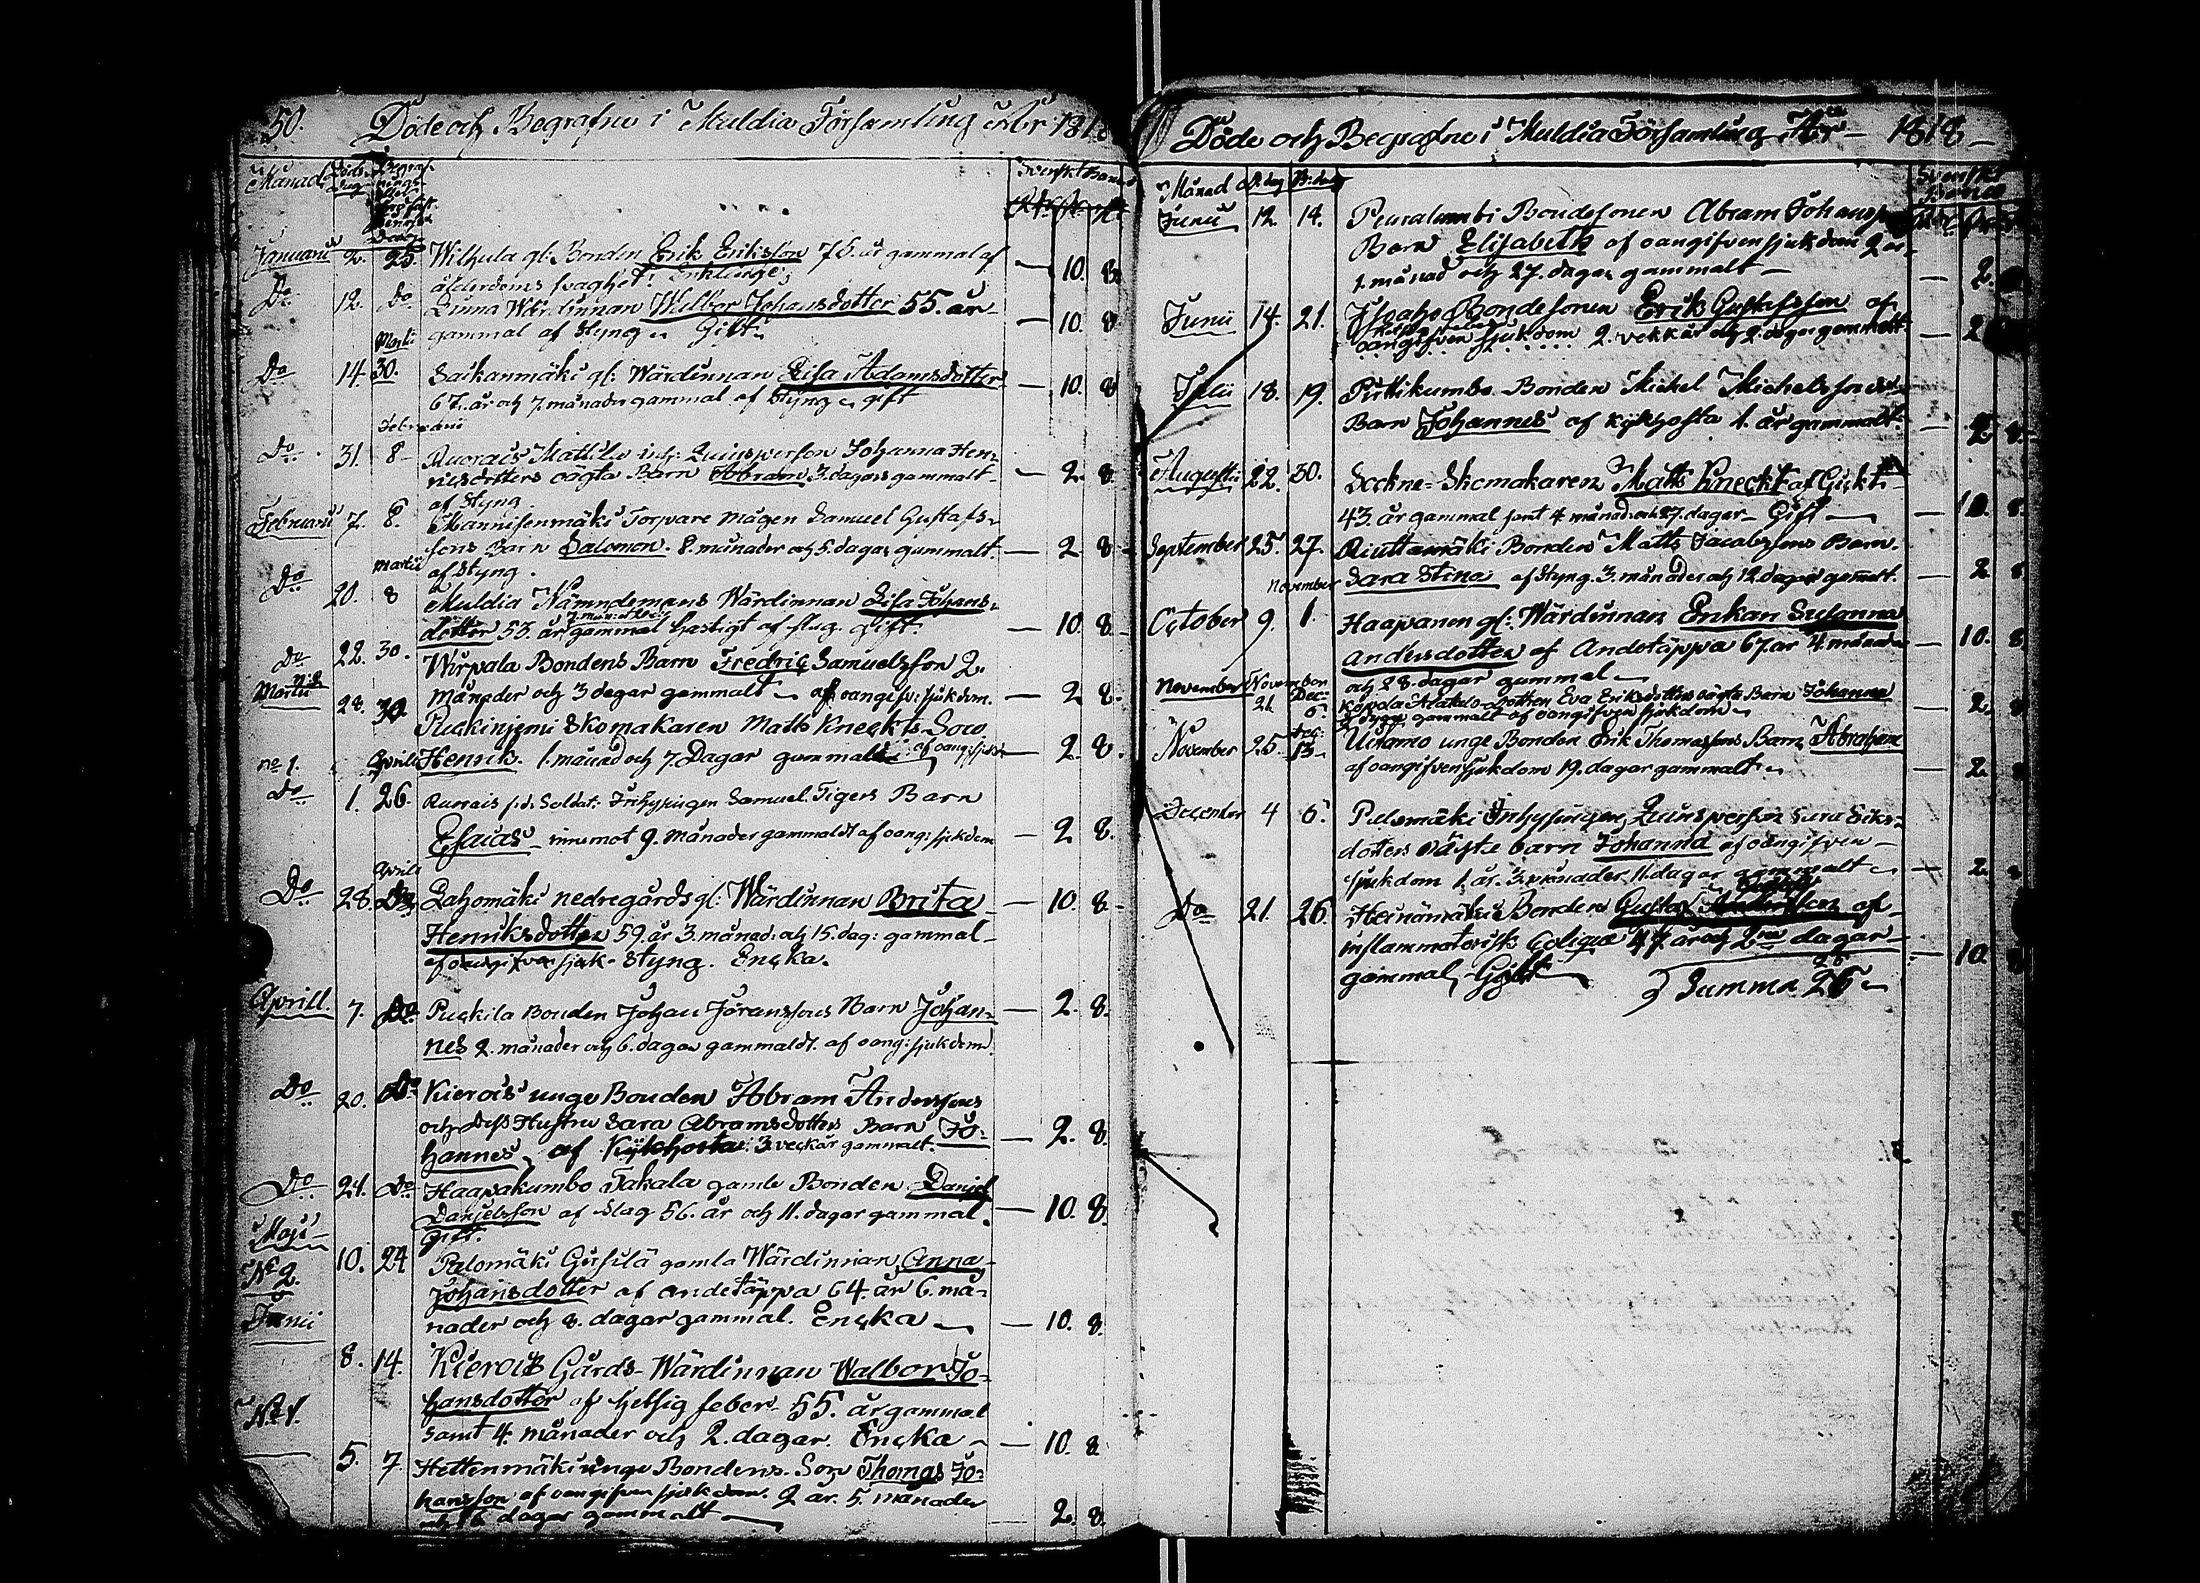 50. Döde och Begrafne i Muldia Församling Åhr 1818
Månad Döds Dag Begrafnings
Svenskt Banco
Januarii 2. 25. Wilhula gl: Bonden Erik Eriksson 75. år gammal af — 10. 8.
ålderdoms svaghet: enkling
Do 12. Do Wärdinnan Walbor Johansdotter 55. år — 10. 8.
gammal af Styng. Gift
Martii
Do 14 30. Saikanmäki gl: Wärdinnan Lisa Adamsdotter — 10. 8
67. år och 7. månader gammal af Styng gift
Februarii
Do 31. 8 Ruorais Mattila inh: Quinsperson Johanna Hen-
ricsdotters oägta Barn Abram 3. dagars gammalt — 2. 8.
af Styng
Februarii 7. 8. Mannisenmäki Torpare mågen Samuel Gustafs-
sons Barn Salomon. 8. månader och 5. dagar gammalt — 2. 8
Martii af Styng.
Do 20. 8 Muldia Nämndemans Wärdinnan Lisa Johans-
dotter 53. år gammal hastigt af slag. gift. — 10. 8.
Do 22. 30. Wirpala Bondens Barn Fredric Samuelsson 2.
Martii månader och 3 dagar gammalt af oangifv: sjukdom. — 2. 8.
28. 30. Puckinjemi Skomakaren Matts Kneckts Son
no 1. Aprill Henrik. 1. månad och 7. Dagar gammal af oang: sjukd: — 2. 8.
Do 1. 26. Ruorais f.d. Soldat: Inhysingen Samuel Tigers Barn
Esaias innemot 9. månader gammaldt af oang: sjukdom — 2 8.
Aprill
Do 28. Do Lahomäki nedregårds gl: Wärdinnan Brita — 10. 8
Henriksdotter 59. år 3. månad: och 15. dag: gammal
af oangifven sjuk- Styng. Encka.
Aprill. 7. Do Puckila Bonden Johan Göranssons Barn Johan- — 2. 8.
nes 2. månader och 6. dagar gammaldt. af oang: sjukdom.
Do 20. Do Kierois unge Bonden Abram Anderssons
och dess Hustru Sara Abramsdotters Barn Jo- — 2. 8.
hannes, af Kijkhosta: 3. veckår gammalt.
Do 21. Do Haapakumbo Takala gamle Bonden Daniel
Danielsson af Slag 56. år och 11. dagar gammal. — 10. 8.
Maji Gift.
No 2. 10. 24 Palomäki Girsilä gamla Wärdinnan Anna
Johansdotter af andetäppa 64. år 6. må-
Junii nader och 8. dagar gammal. Encka — 10. 8.
8. 14. Kierois Gårds-Wärdinnan Walbor Jo-
hansdotter af hetsig feber 55. år gammal
No 1. samt 4. månader och 2. dagar. Encka — 10. 8.
5. 7. Hettenmäki unge Bondens Son Thomas Jo-
hansson af oangifven sjukdom. 2 år. 5. månader
och 16 dagar gammalt — 2. 8.
Döde och Begrafne i Muldia Församling År 1818
Månad D. dag B: dag
Svenskt Banco
Junii 12. 14. Peuralambi Bondesonen Abram Johanss
Barn Elisabeth af oangifven sjukdom 2 år
1. månad och 27. dagar gammalt — 2.
Junii 14. 21. Isoaho Bondesonen Erik Gustafsson af
oangifven sjukdom 2. veckår och 2. dagar gammalt — 2
Julii 18. 19. Pirttikumbo Bonden Michel Michelsson
Barn Johannes af kijkhosta 1. år gammalt. — 2. 8.
Augusti 22. 30. Sockne-Skomakaren Matts Kneckt af Gickt
43. år gammal samt 4. månad. och 27. dagar Gift — 10. 8.
September 25. 27. Riuttamäki Bonden Matts Jacobssons Barn.
November Sara Stina af Styng. 3. månader och 12. dagar gamalt. — 2. 8
October 9. 1. Haapanen gl: Wärdinnan Enkan Susanna
Andersdotter af Andetäppa 67. år 4. månad — 10. 8
och 28. dagar gammal
November November 21. Dec: 6. Alatalo dottren Eva Eriksdotters oägta Barn Johanna
gammalt af oangifven sjukdom — 2. 8
November 25. Dec: 13 Uitamo unge Bonden Erik Thomassons Barn Abraham
af oangifven sjukdom 19. dagar gammalt — 2. 8
December 4 6. Palomäki Inhysingen Quinsperson Sara Eriks-
dotters oägta barn Johanna af oangifven
sjukdom 1. år. 3. månader 11. dagar gammalt — 2.
Do 21. 26. Heinämäki Bonden Gustaf af
inflammatorisk Colique 47. år och 2ne dagar — 10. 8
gammal, Gift Summa 26